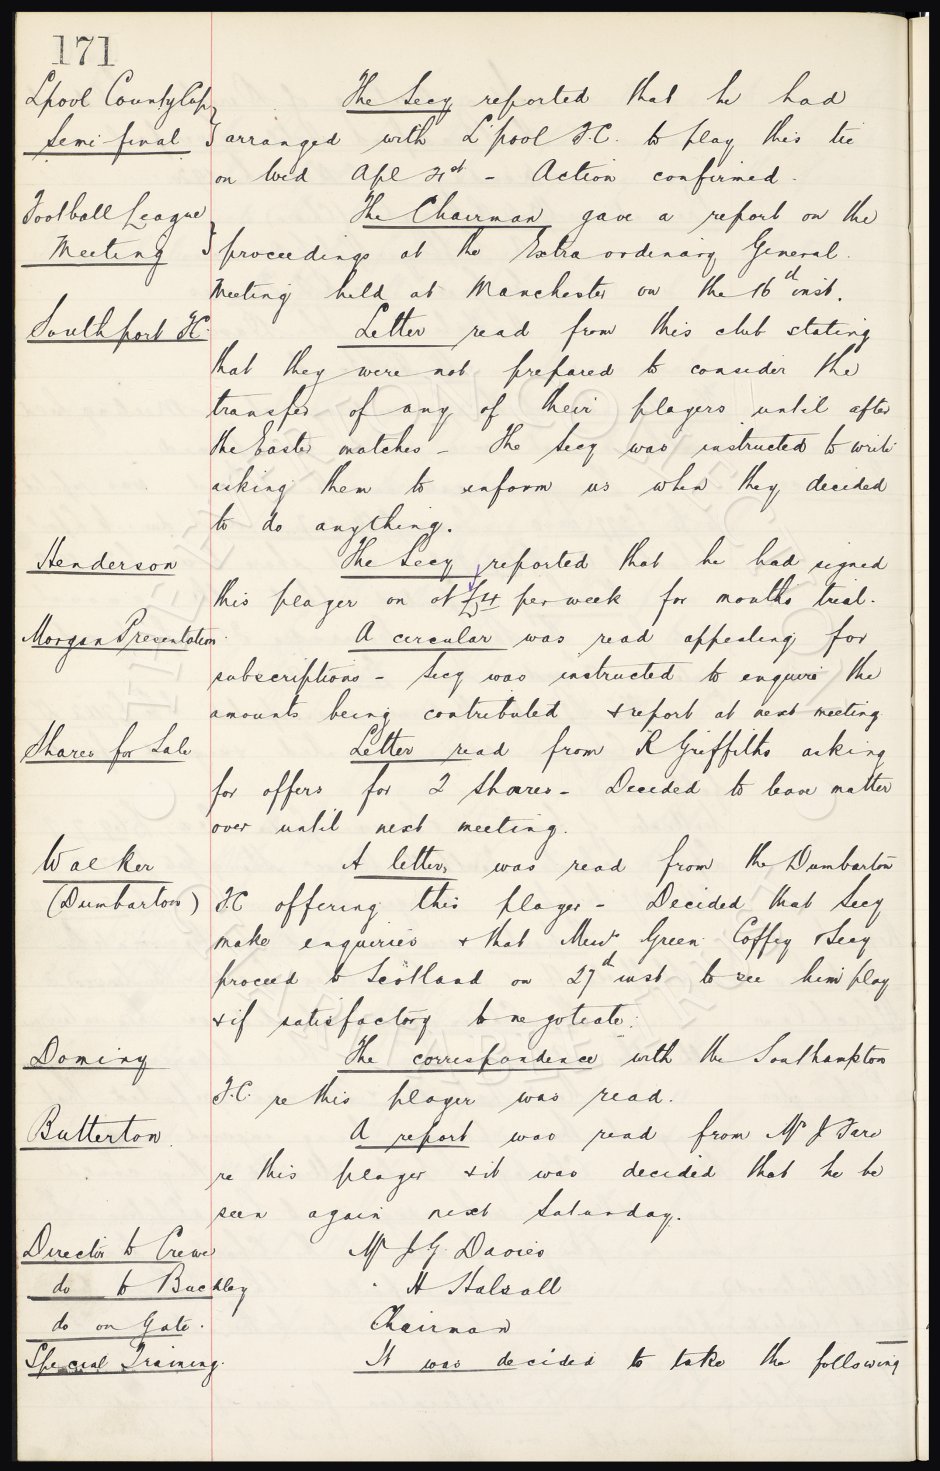 171
L'pool County Cup The Secy reported that he had
Semi-final } arranged with L'pool F.C. to play this tie
on Wed Apl - Action confirmed.
Football League The Chairman gave a report on the
Meeting } proceedings at the Extraordinary General
Meeting held at Manchester on the 16th inst.
Southport F.C. Letter read from this club stating
that they were not prepared to consider the
transfer of any of their players until after
the Easter matches - The Secy was instructed to write
asking them to inform us when they decided
to do anything.
Henderson The Secy reported that he had signed
this player on at £4 per week for months trial.
Morgan Presentation A circular was read appealing for
subscriptions - Secy was instructed to enquire the
amounts being contributed & report at next meeting
Shares for Sale Letter read from R Griffiths asking
for offers for 2 Shares - Decided to leave matter
over until next meeting.
Walker A letter was read from the Dumbarton
(Dumbarton) F.C offering this player - Decided that Secy
make enquiries & that Messrs Green Coffey & Secy
proceed to Scotland on 27th inst to see him play
& if satisfactory to negotiate.
Dominy The correspondence with the Southampton
F.C. re this player was read.
Butterton A report was read from Mr J Fare
re this player & it was decided that he be
seen again next Saturday.
Director to Crewe Mr J.G. Davies
do to Buckley " H Halsall
do on Gate. Chairman
Special Training. It was decided to take the following